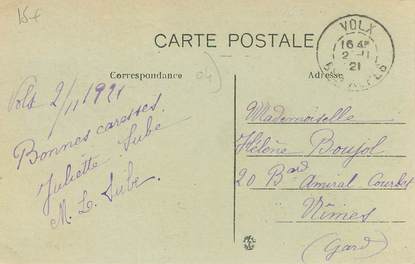 15+
CARTE POSTALE
VOLX
16 45
2-11
21
Bses ALPES
Correspondance
04
Adresse
Volx 2/11 1921
Bonnes caresses.
Juliette Lube
M. L. Lube.
Mademoiselle
Hélène Boujol
20 Bard Amiral Courbet
Nîmes
(Gard)